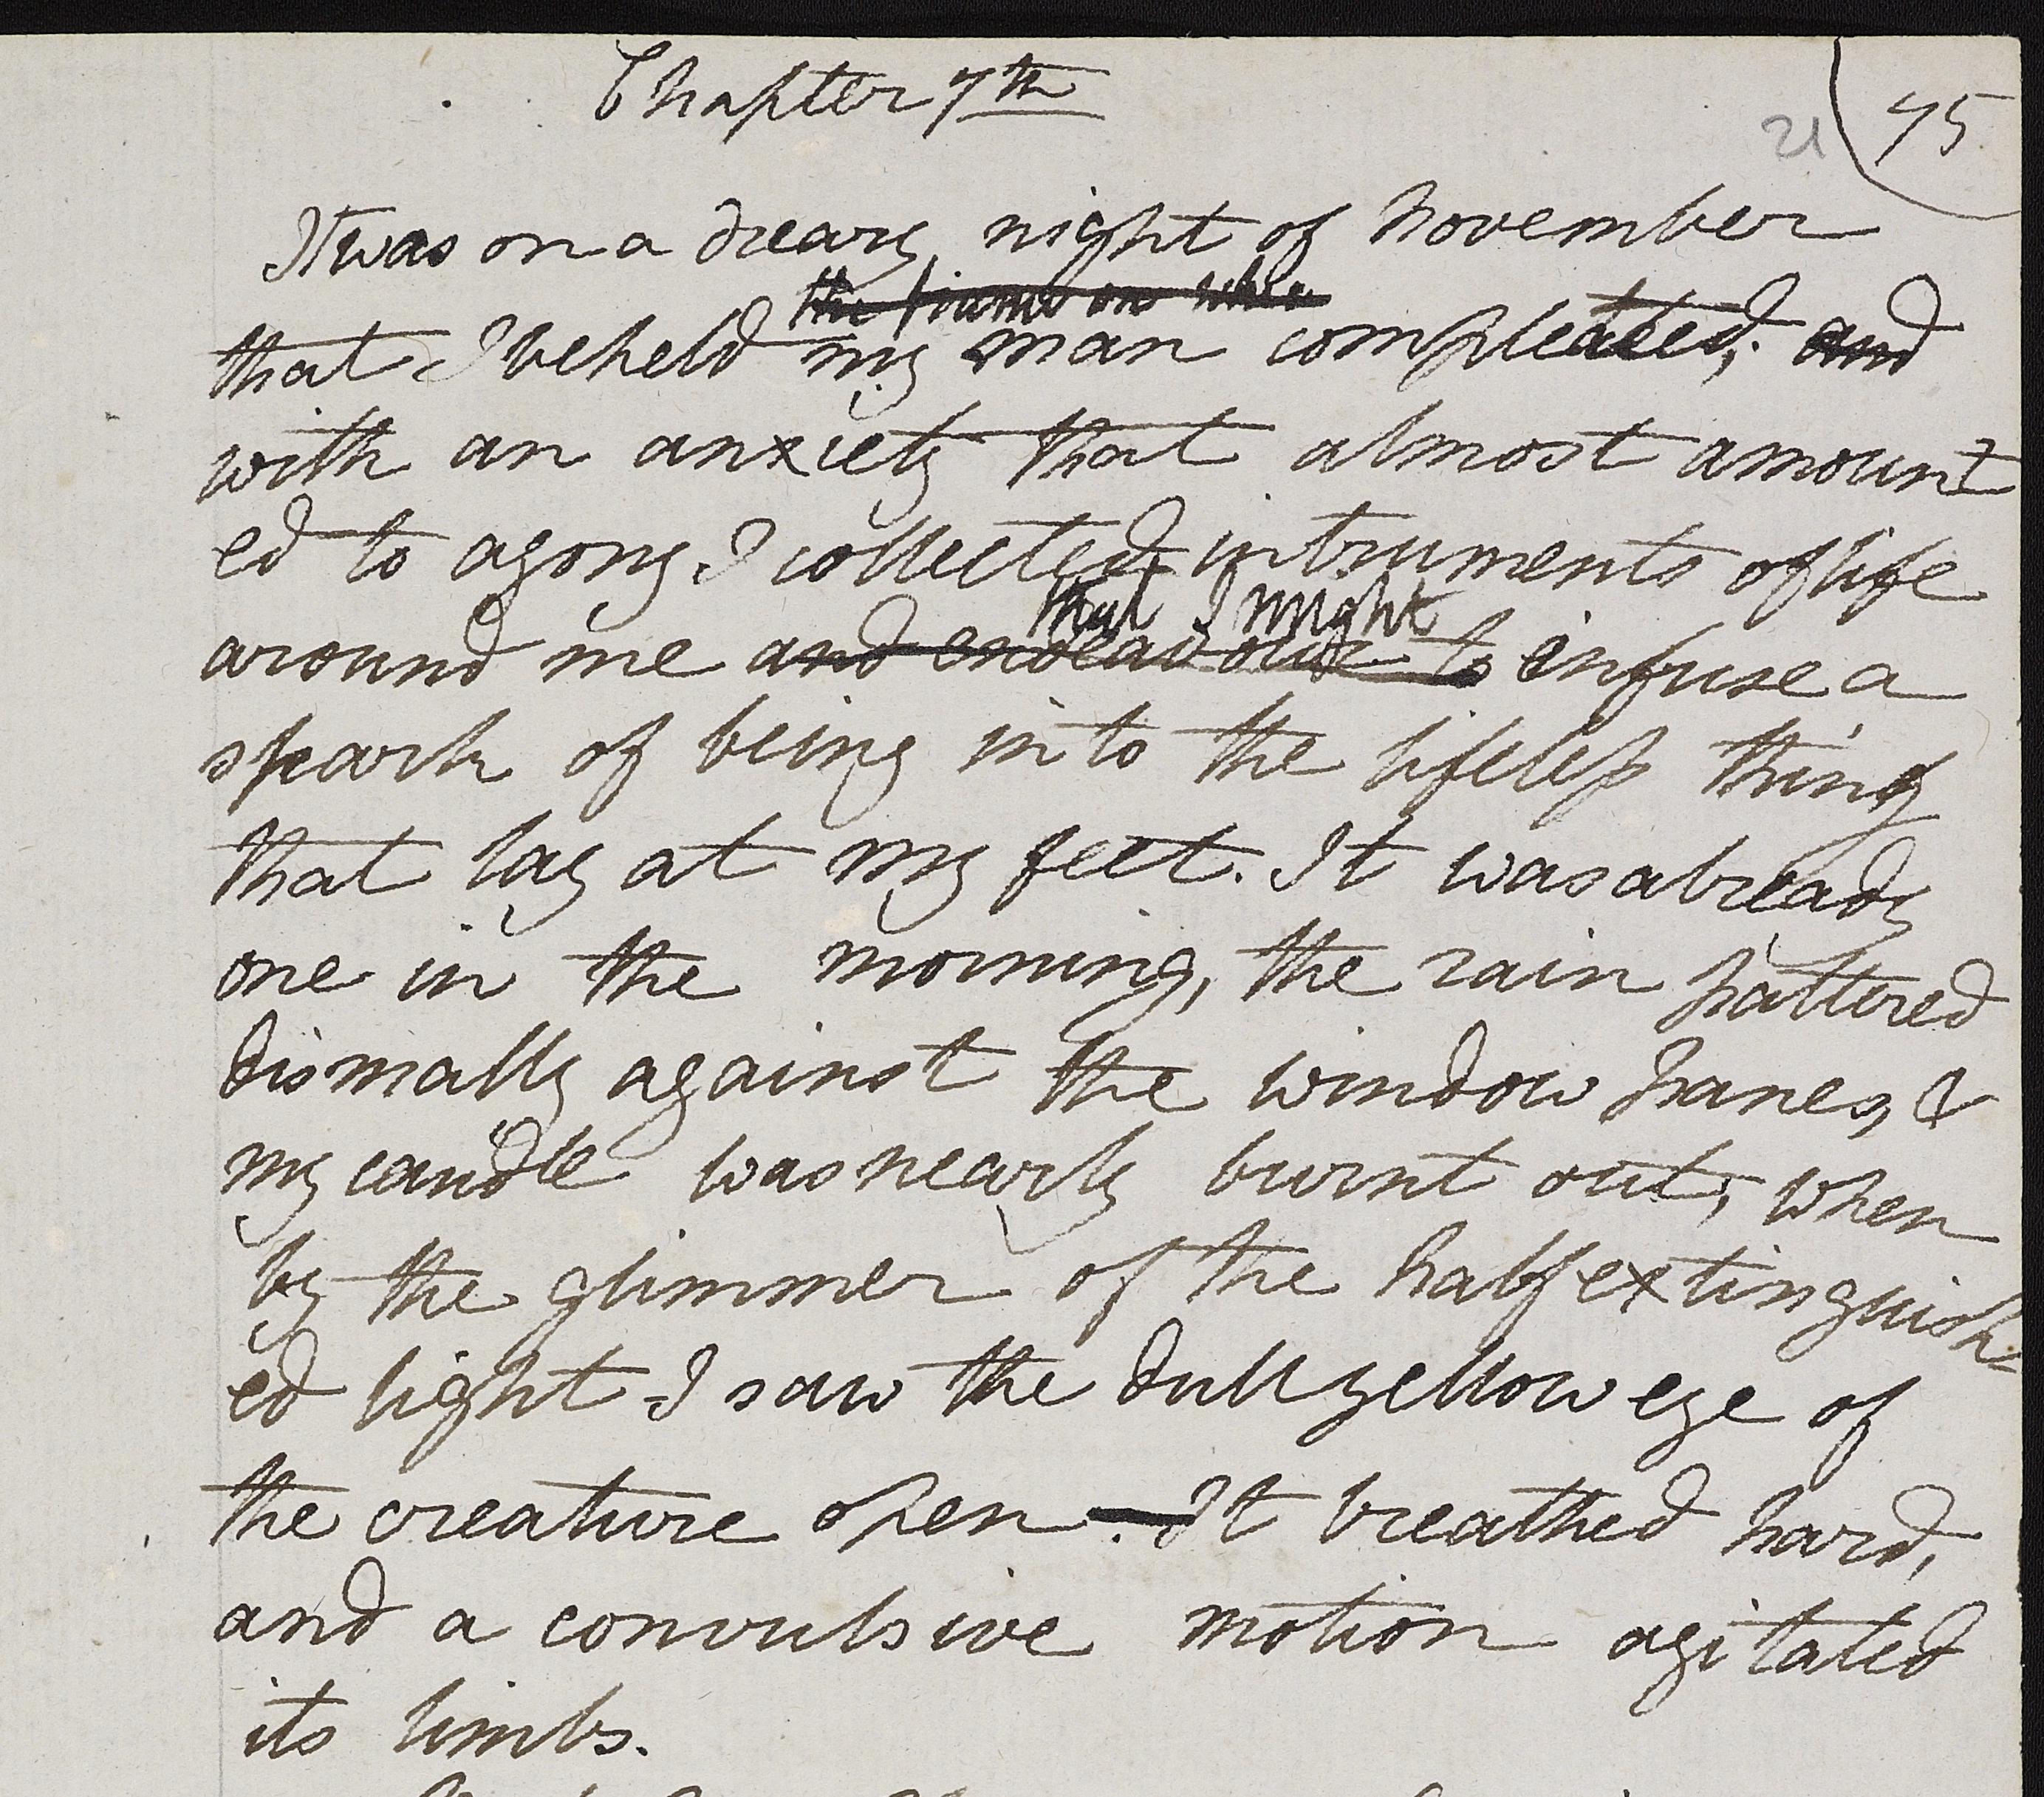 Chapter 7th
21
75
It was on a dreary night of November
the frame on whic
that I beheld my man compleated; and
with an anxiety that almost amount
ed to agony I collected intruments of life
that I might
around me and endeavour to infuse a
spark of being into the lifeless thing
that lay at my feet. It was already
one in the morning, the rain pattered
dismally against the window panes, &
my candle was nearly burnt out, when
by the glimmer of the half extinguish-
ed light I saw the dull yellow eye of
the creature open. It breathed hard,
and a convulsive motion agitated
its limbs.